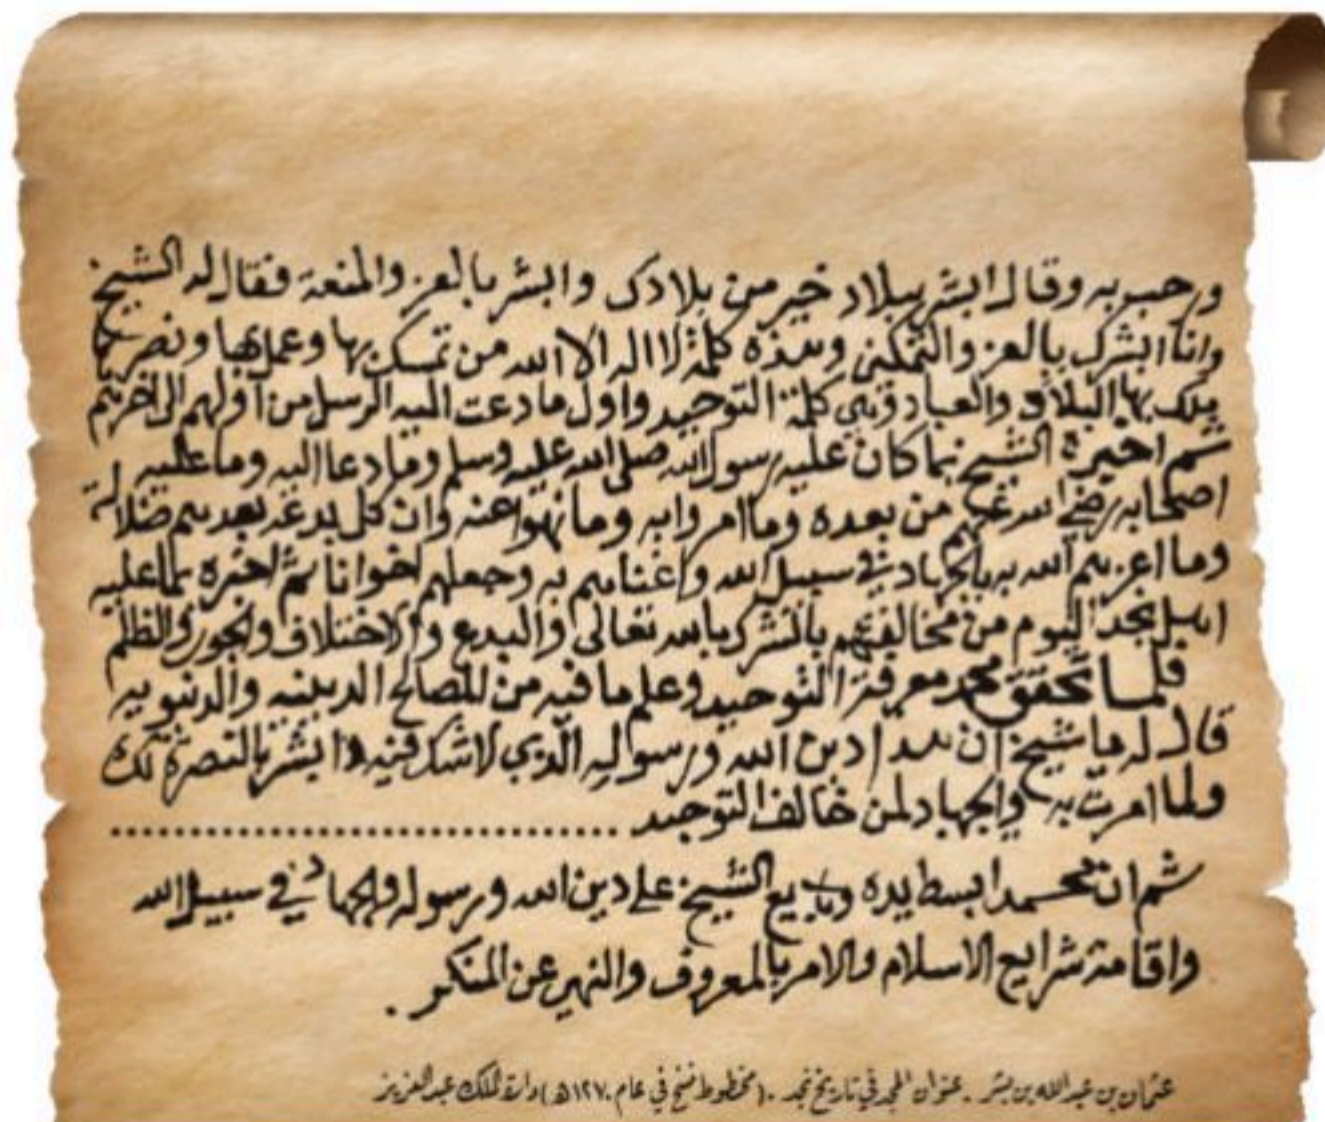 ورحب به وقال ابشر ببلاد خير من بلادك وابشر بالعز والمنعة فقال له الشيخ
وانا ابشرك بالعز والتمكين وهذه كلمة لا اله الا الله من تمسك بها وعمل بها ونصرها
ملك بها البلاد والعباد وهي كلمة التوحيد واول ما دعت اليه الرسل من اولهم الى اخرهم
ثم اخبره الشيخ بما كان عليه رسول الله صلى الله عليه وسلم وما دعا اليه وما عليه
اصحابه رضي الله عنهم من بعده وما امروا به وما نهوا عنه وان كل بدعة بعدهم ضلالة
وما اعزهم الله به بالجهاد في سبيل الله واغناهم به وجعلهم اخوانا ثم اخبره بما عليه
اهل نجد اليوم من مخالفتهم بالشرك بالله تعالى والبدع والاختلاف والجور والظلم
فلما تحقق محمد معرفة التوحيد وعلم ما فيه من المصالح الدينيه والدنيويه
قال له يا شيخ ان هذا دين الله ورسوله الذي لا شك فيه وابشر بالنصرة لك
ولما امرت به والجهاد لمن خالف التوحيد ........................................
ثم ان محمدا بسط يده وبايع الشيخ على دين الله ورسوله والجهاد في سبيل الله
واقامة شرايع الاسلام والامر بالمعروف والنهي عن المنكر .
عثمان بن عبدالله بن بشر . عنوان المجد في تاريخ نجد . (مخطوط نسخ في عام ١٢٧٠هـ) دارة الملك عبدالعزيز